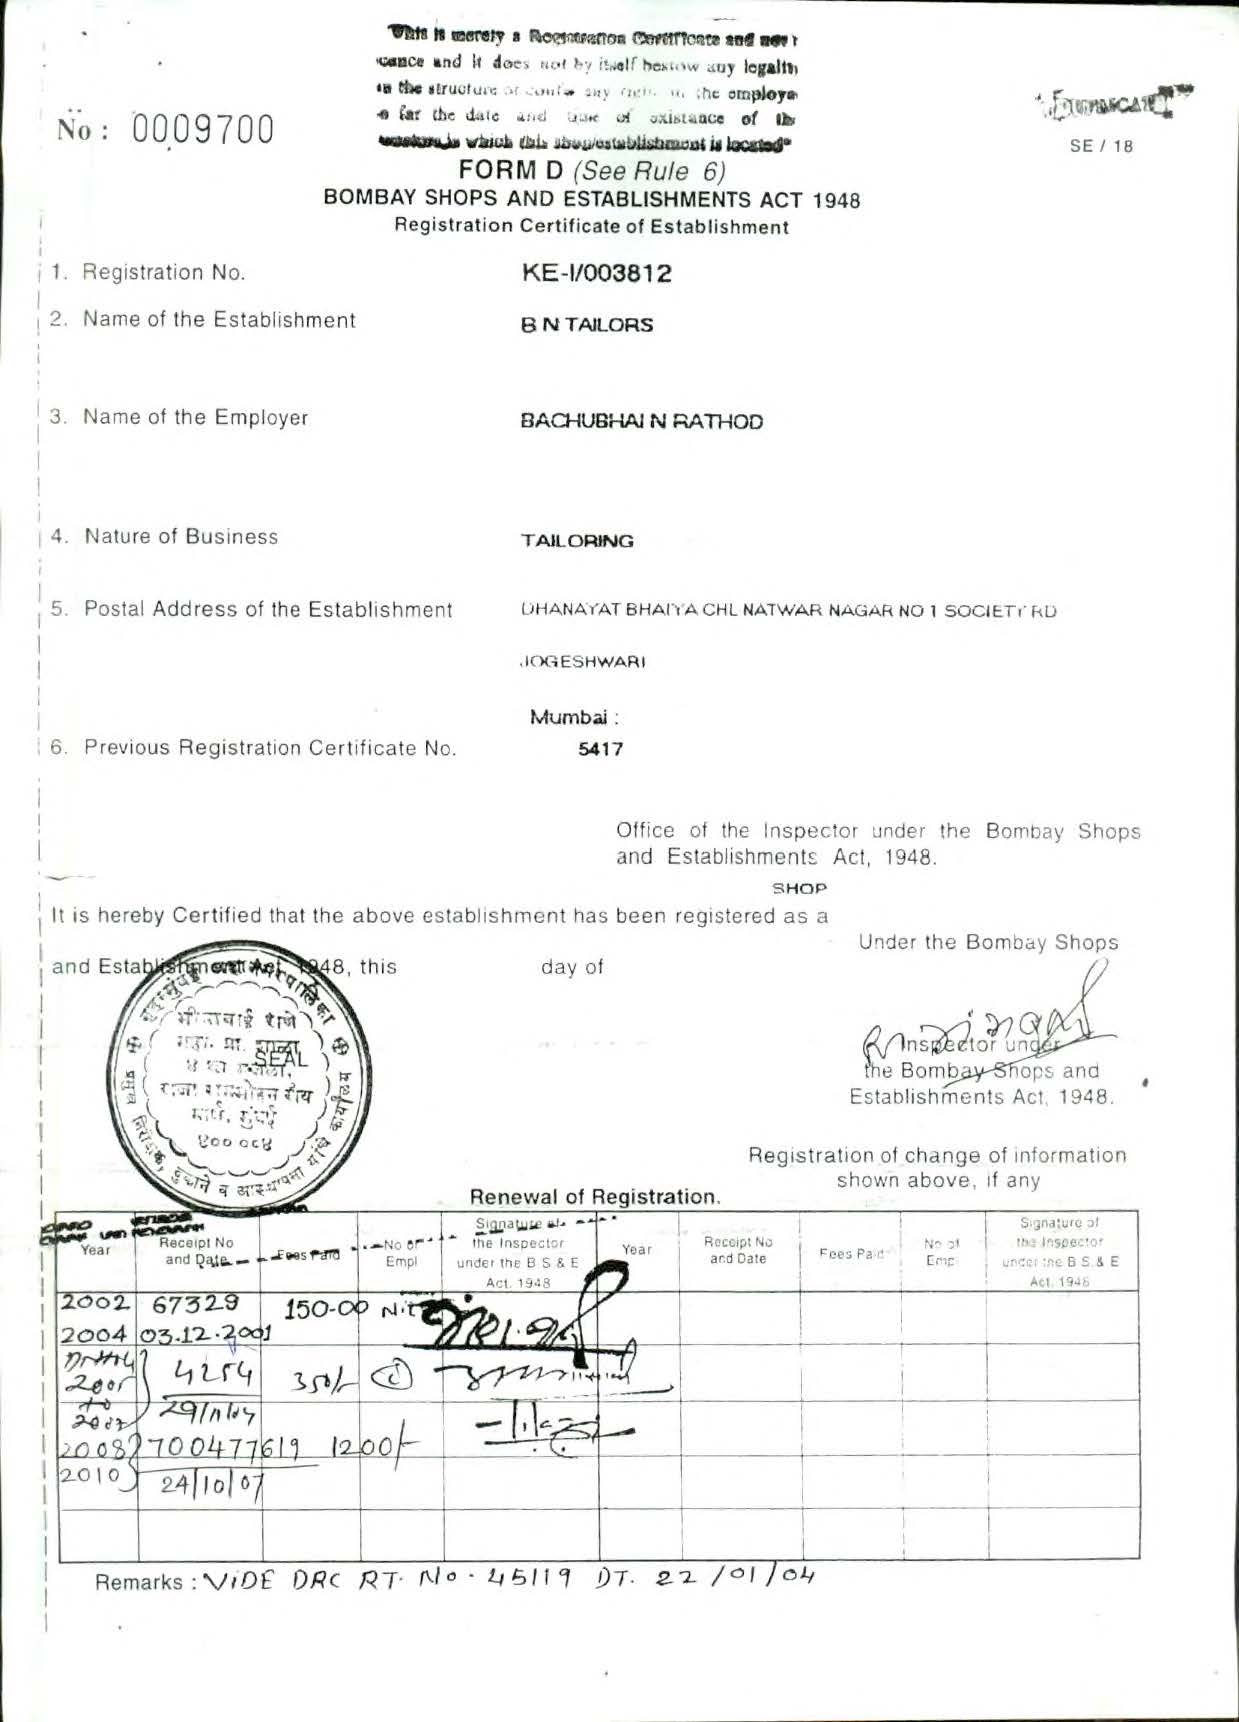 This is merely a Registration Certificate and
and it does not by itself bestow any legality
the structure or any the
far the date and of existance of
in which this shop/establishment is located"
No : 0009700
SE / 18
FORM D (See Rule 6)
BOMBAY SHOPS AND ESTABLISHMENTS ACT 1948
Registration Certificate of Establishment
1. Registration No. KE-I/003812
2. Name of the Establishment B N TAILORS
3. Name of the Employer BACHUBHAI N RATHOD
4. Nature of Business TAILORING
5. Postal Address of the Establishment DHANAYAT BHAIYA CHL NATWAR NAGAR NO 1 SOCIETY RD
JOGESHWARI
Mumbai :
6. Previous Registration Certificate No. 5417
Office of the Inspector under the Bombay Shops
and Establishments Act, 1948.
SHOP
It is hereby Certified that the above establishment has been registered as a
Under the Bombay Shops
and Establishment Act, 1948, this day of
बृहन्मुंबई महानगरपालिका
राणे
शाळा
SEAL
मार्ग, मुंबई
४०० ०८४
Inspector under
the Bombay Shops and
Establishments Act, 1948.
Registration of change of information
shown above, if any
Renewal of Registration.
Year
Receipt No
and Date
Fees Paid
No of
Empl
Signature of
the Inspector
under the B S & E
Act. 1948
Year
Receipt No
and Date
Fees Paid
No of
Empl
Signature of
the Inspector
under the B S & E
Act. 1948
2002 67329 150-00 Nil
2004 03.12.2001
2005 4254 350/-
to 29/11/04
2007
2008 700477619 1200/-
2010 24/10/07
Remarks : VIDE DRC RT. No. 45119 DT. 22/01/04